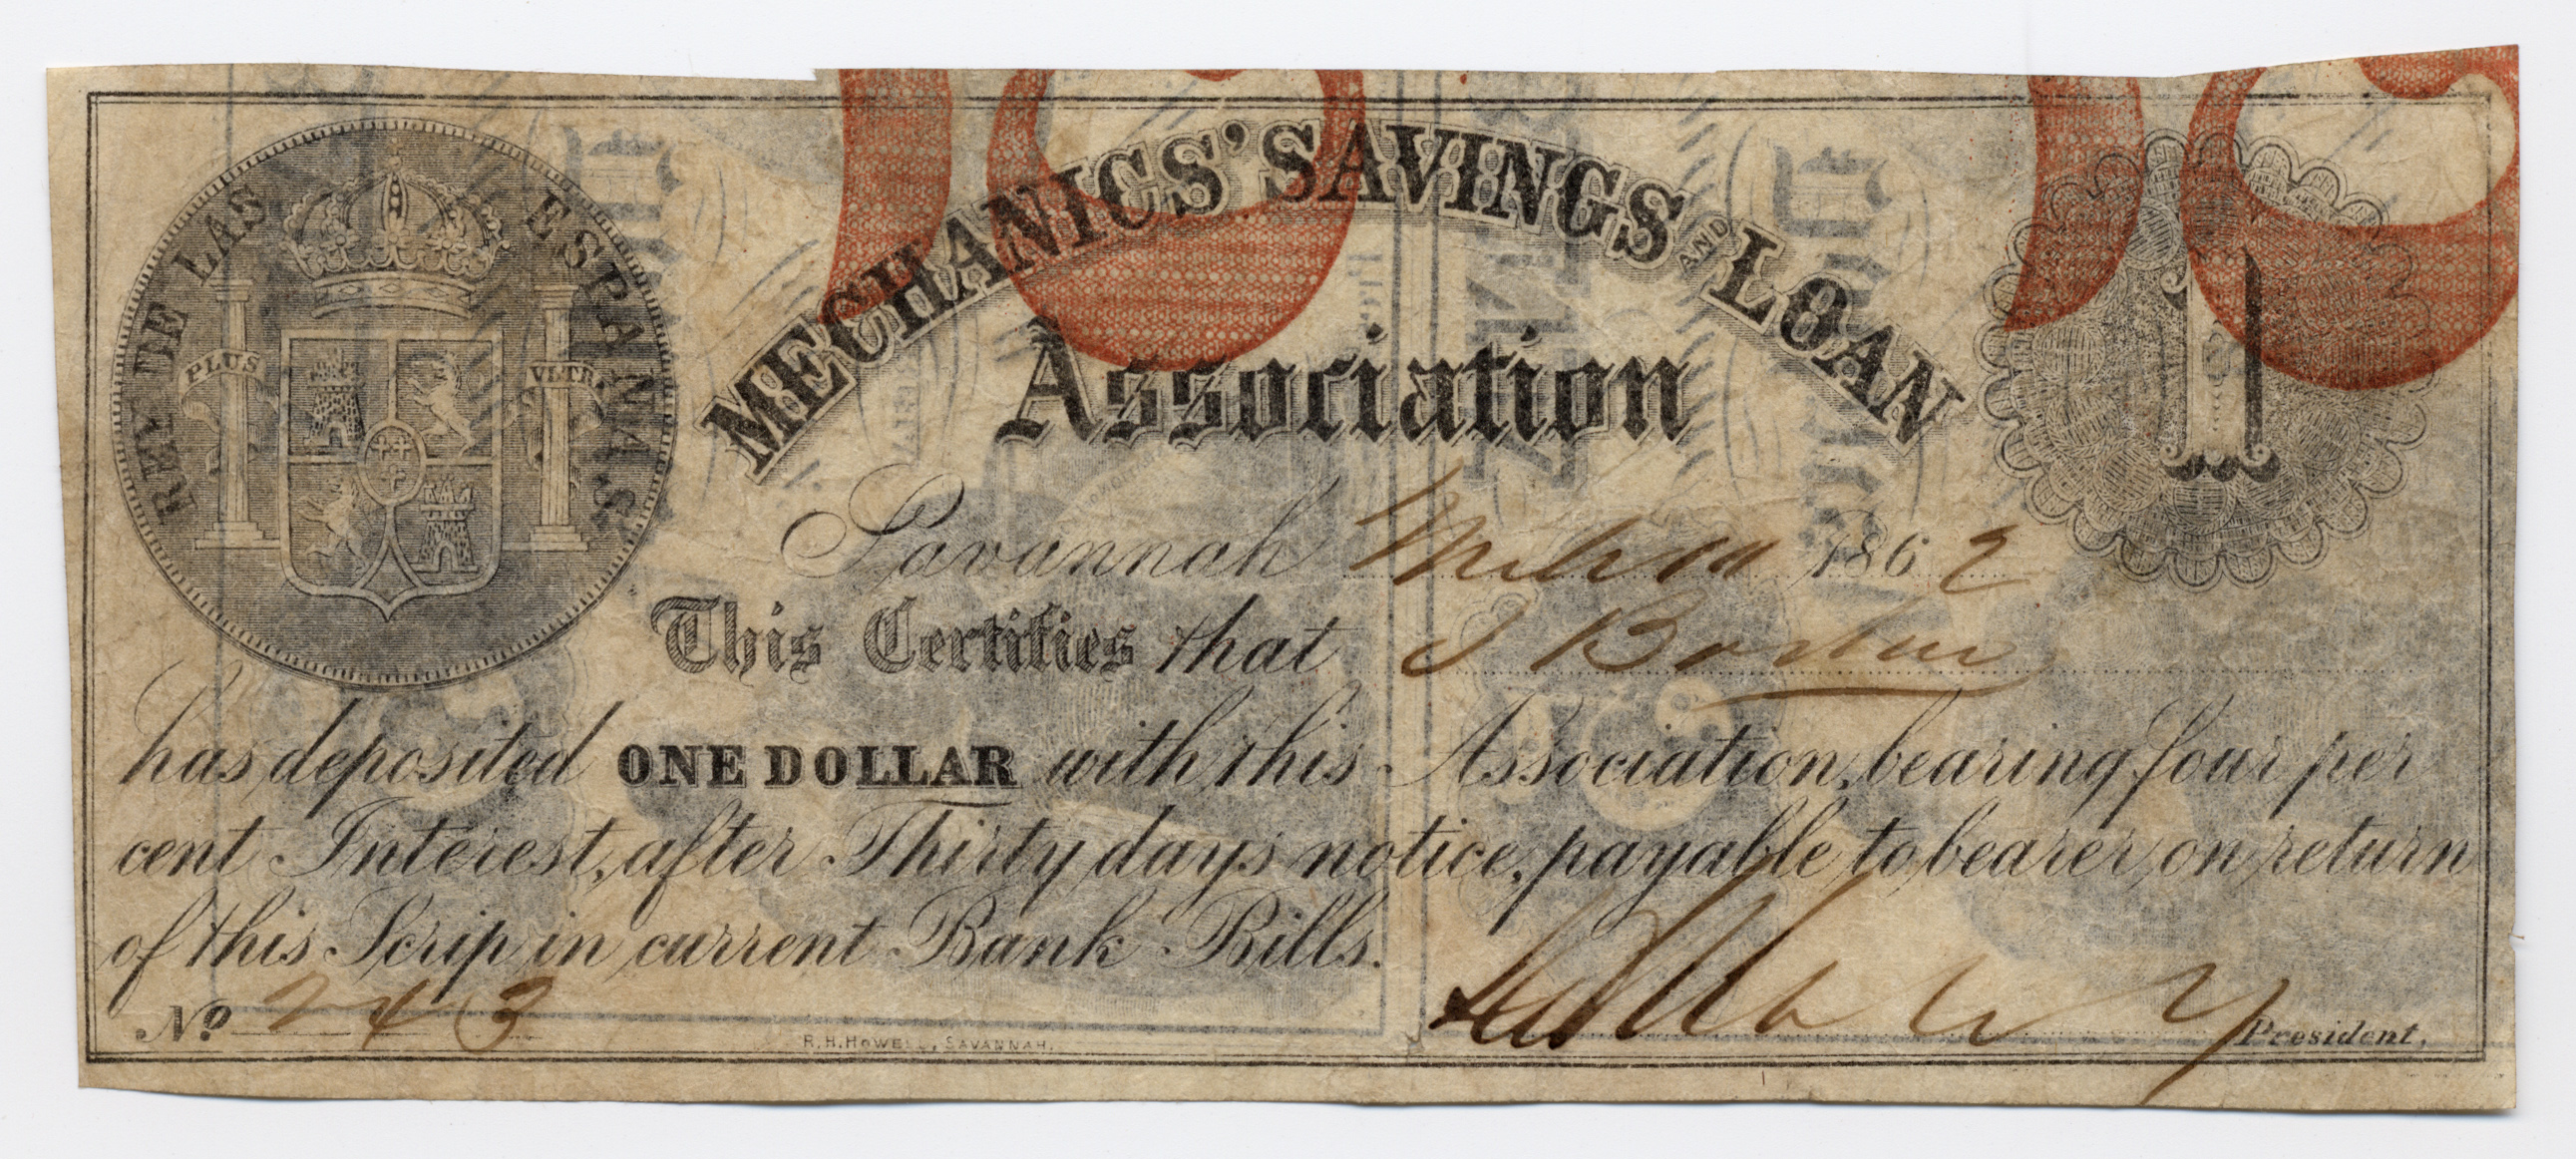 REY DE LAS ESPAÑAS
PLUS VLTR
MECHANICS' SAVINGS AND LOAN
Association
1
Savannah 1862
This Certifies that J Boston
has deposited ONE DOLLAR with this Association, bearing four per
cent Interest, after Thirty days notice, payable to bearer on return
of this Scrip in current Bank Bills.
No. 243
President,
R. H. HOWELL, SAVANNAH.